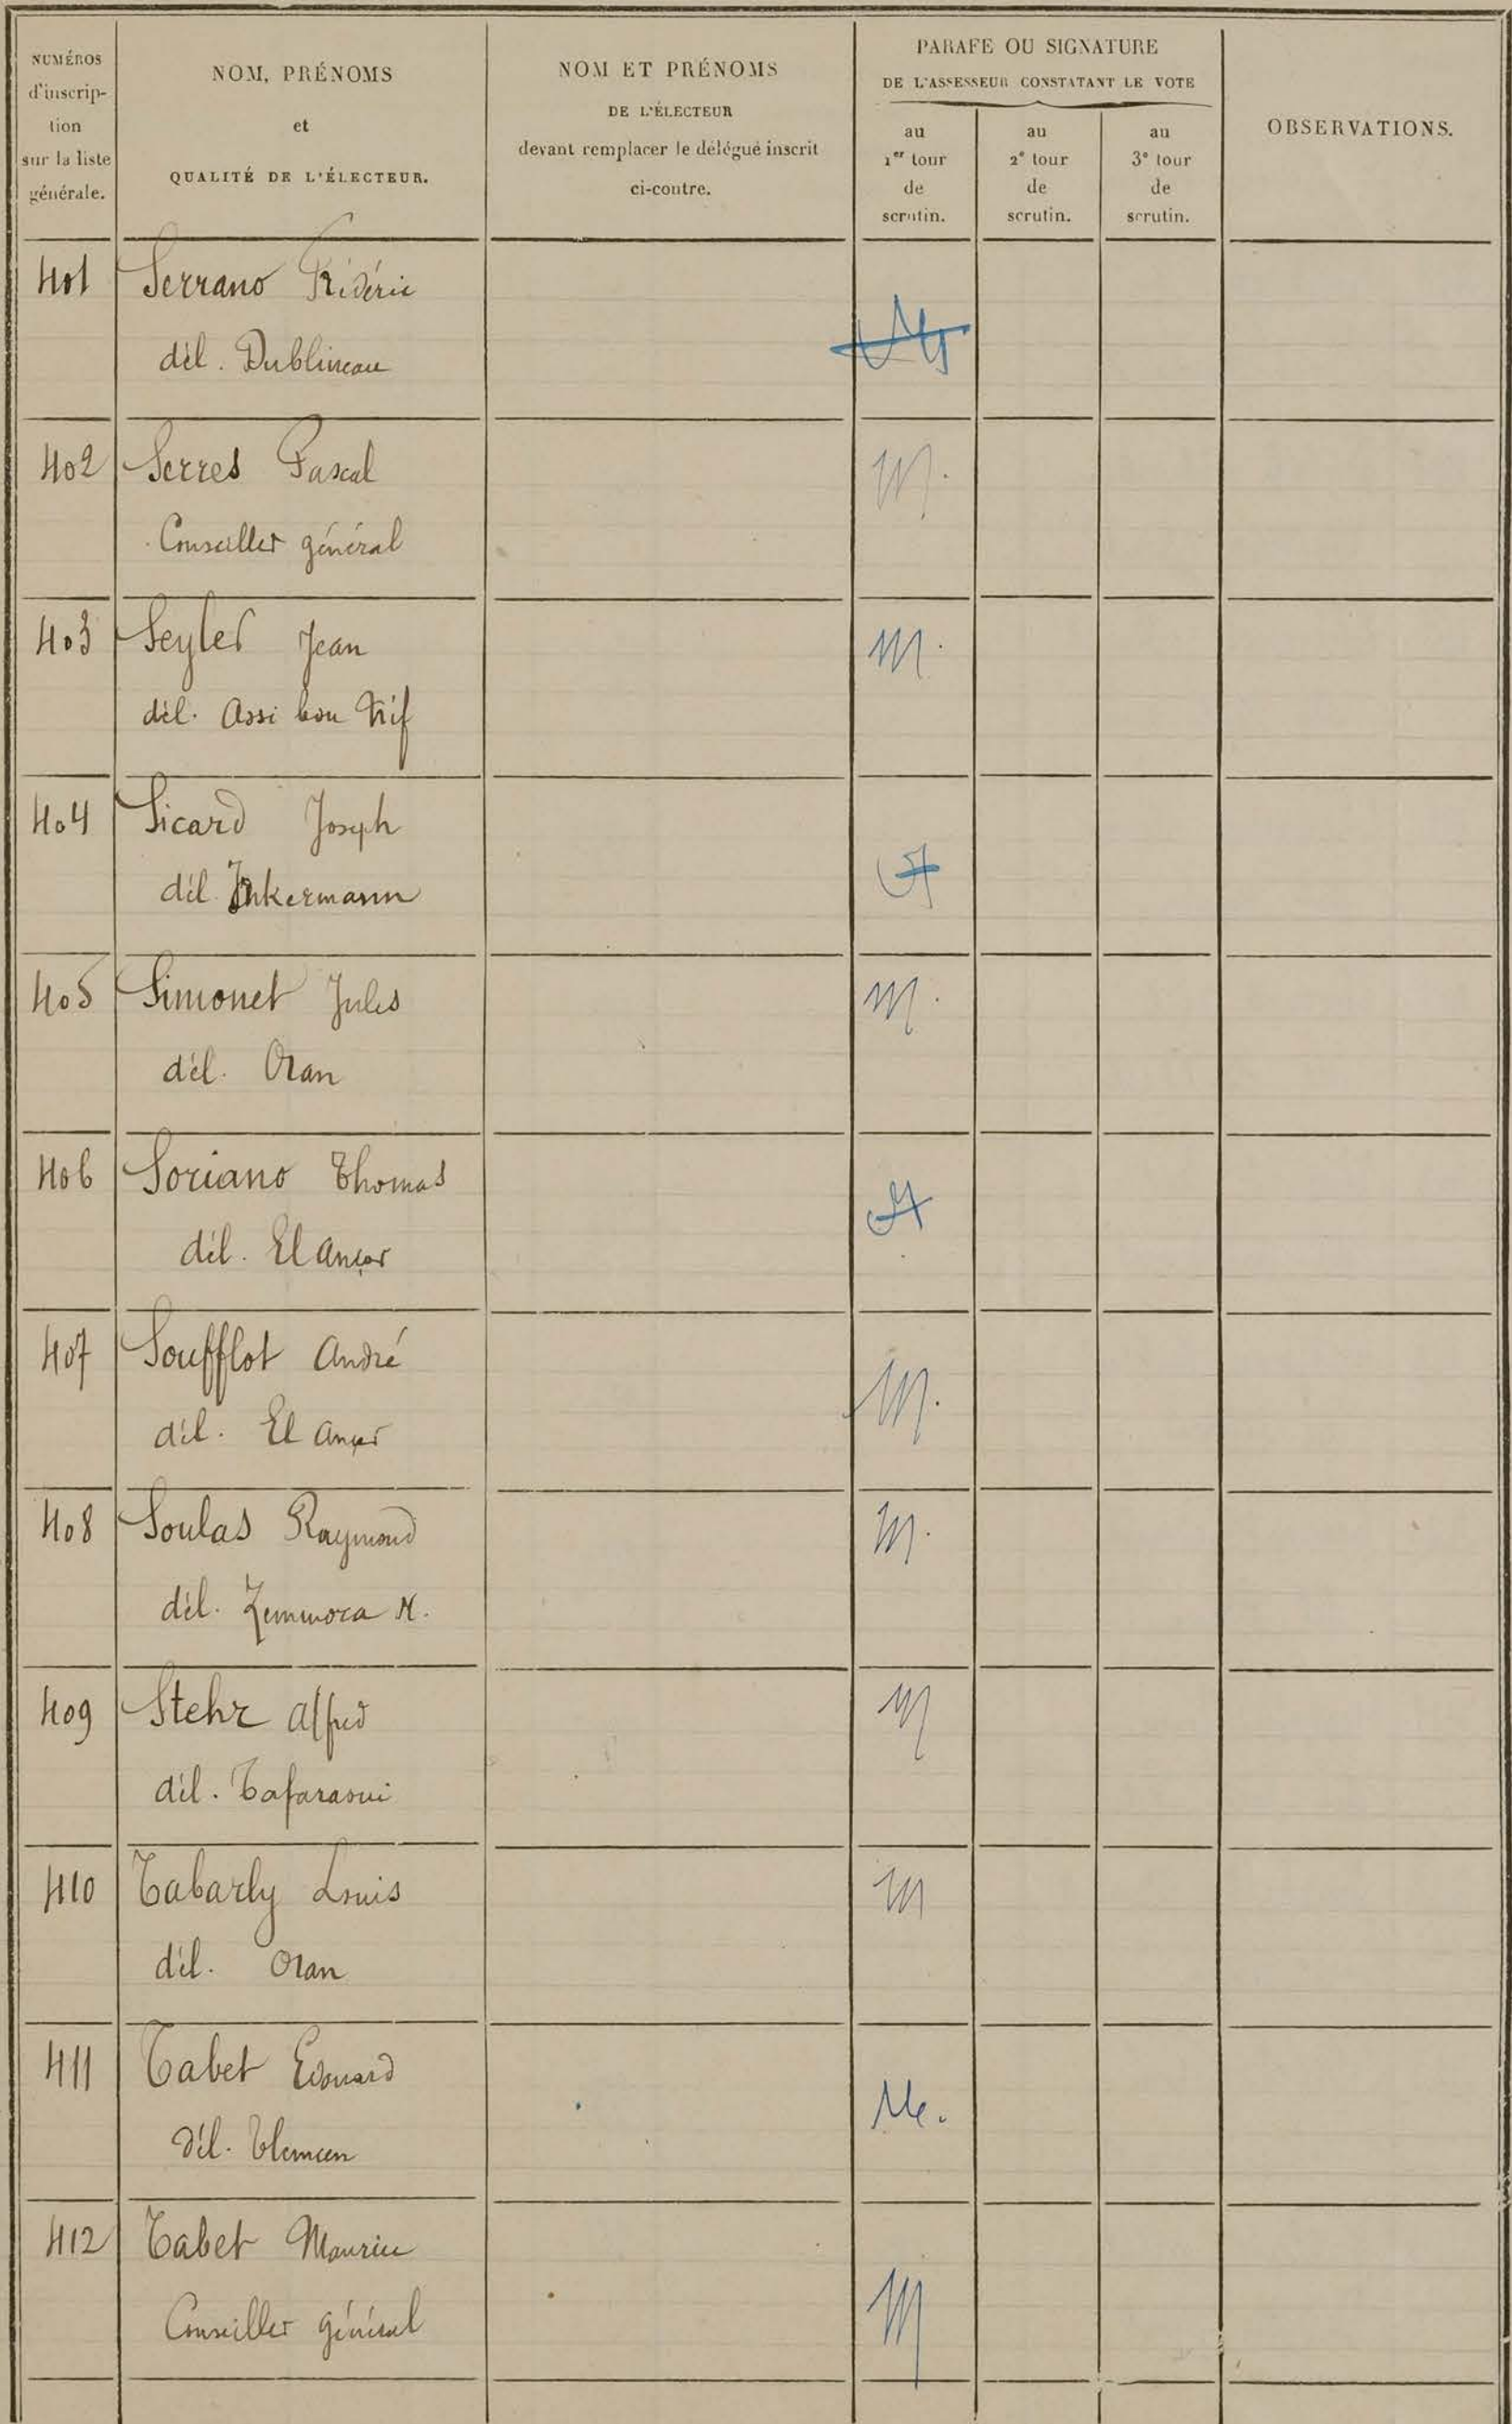 NUMÉROS
d'inscrip-
tion
sur la liste
générale.
NOM, PRÉNOMS
et
QUALITÉ DE L'ÉLECTEUR.
NOM ET PRÉNOMS
DE L'ÉLECTEUR
devant remplacer le délégué inscrit
ci-contre.
PARAFE OU SIGNATURE
DE L'ASSESSEUR CONSTATANT LE VOTE
au
1er tour
de
scrutin.
au
2e tour
de
scrutin.
au
3e tour
de
scrutin.
OBSERVATIONS.
401 Serrano Frédéric
dél. Dublineau
402 Serres Pascal
Conseiller général
M.
403 Seyler Jean
M.
dél. Assi bou Nif
404 Sicard Joseph
dél. Inkermann
405 Simonet Jules
M.
dél. Oran
406 Soriano Thomas
dél. El Ançor
407 Soufflot André
M.
dél. El Ançor
408 Soulas Raymond
M.
dél. Zemmora M.
409 Stehr Alfred
M
dél. Tafaraoui
410 Tabarly Louis
M
dél. Oran
411 Tabet Edouard
Me.
dél. Tlemcen
412 Tabet Maurice
Conseiller général
M